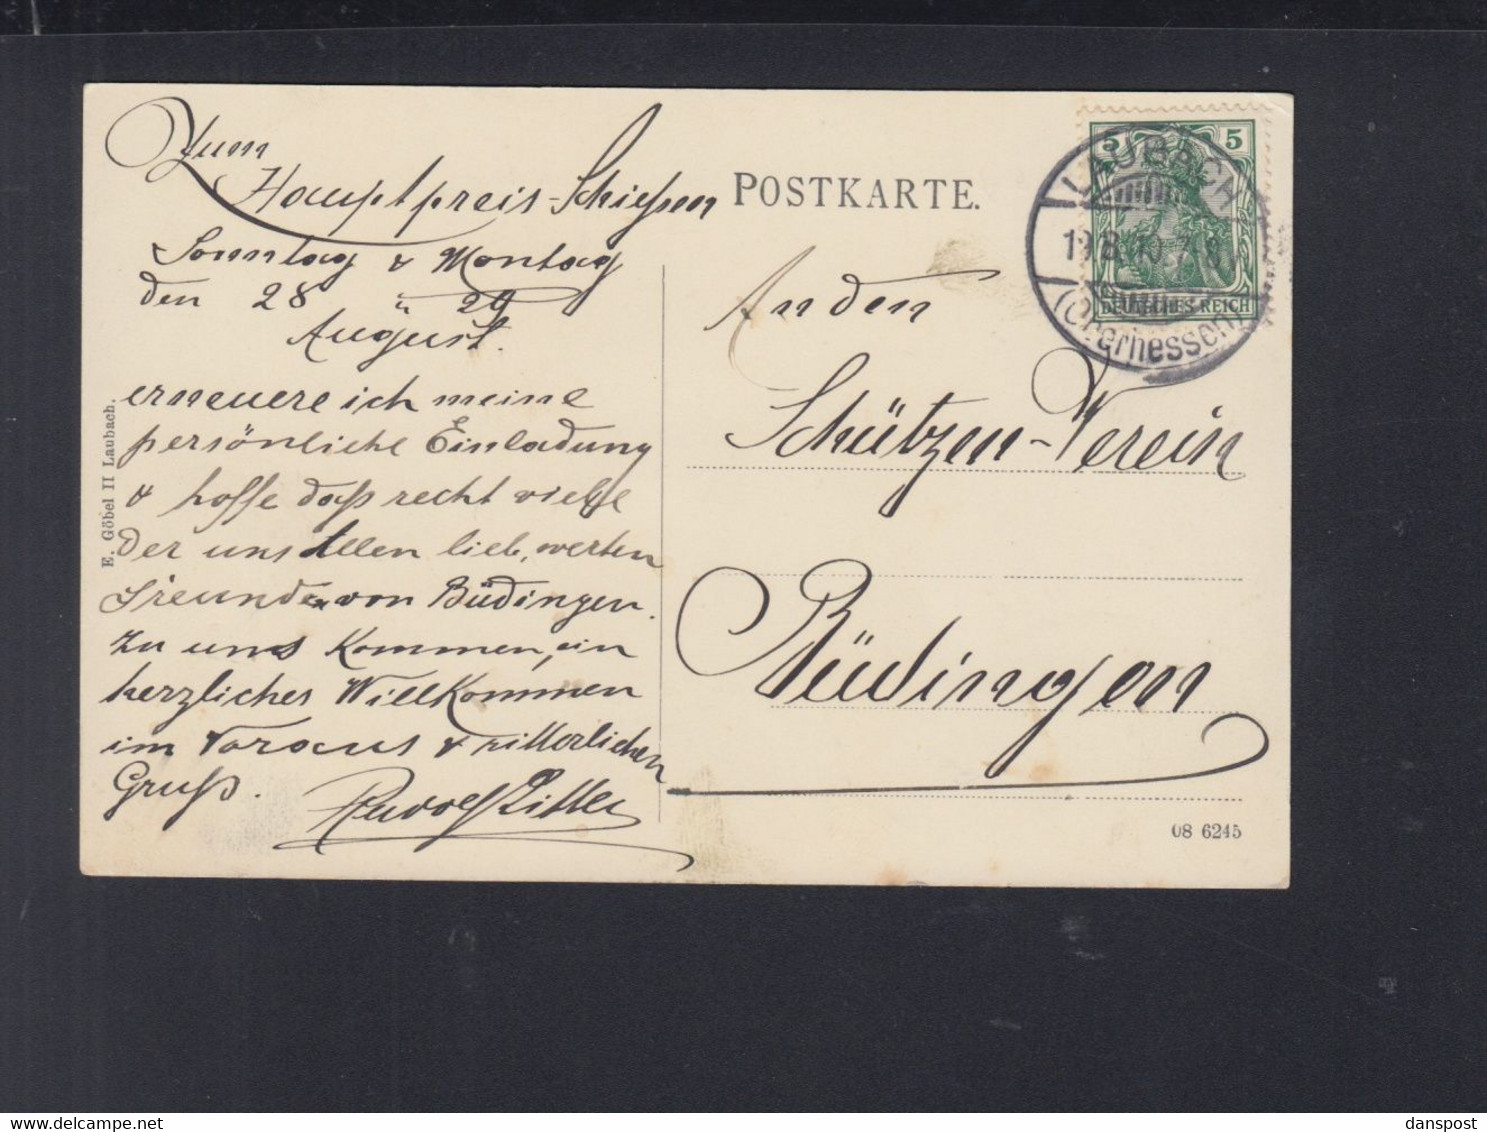 Zum
Hauptpreis-Schießen
Sonntag & Montag
den 28 u 29
August.
erneuere ich meine
persönliche Einladung
& hoffe daß recht viele
der uns Allen lieb. werten
Freunde von Büdingen.
zu uns Kommen, ein
herzliches Willkommen
im Voraus & ritterlichen
Gruß.
Rudolf
E. Göbel II Laubach.
POSTKARTE.
An den
Schützen-Verein
Büdingen
08 6245
5 5
DEUTSCHES REICH
LAUBACH
(Oberhessen)
www.delcampe.net
danspost